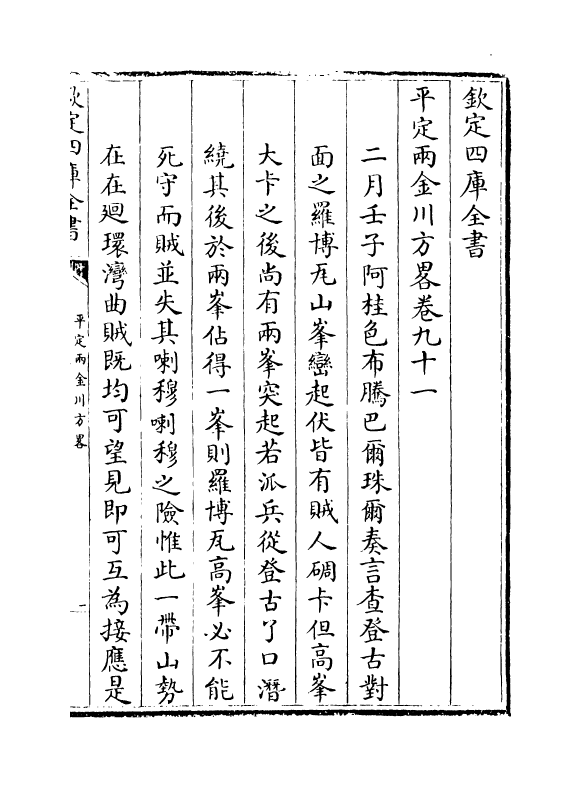 欽定四庫全書
平定兩金川方畧卷九十一
二月壬子阿桂色布騰巴爾珠爾奏言查登古對
面之羅博瓦山峯巒起伏皆有賊人碉卡但高峯
大卡之後尚有兩峯突起若派兵從登古了口潛
繞其後於兩峯佔得一峯則羅博瓦高峯必不能
死守而賊並失其喇穆喇穆之險惟此一帶山勢
在在廻環灣曲賊既均可望見即可互為接應是
欽定四庫全書
平定兩金川方畧
一